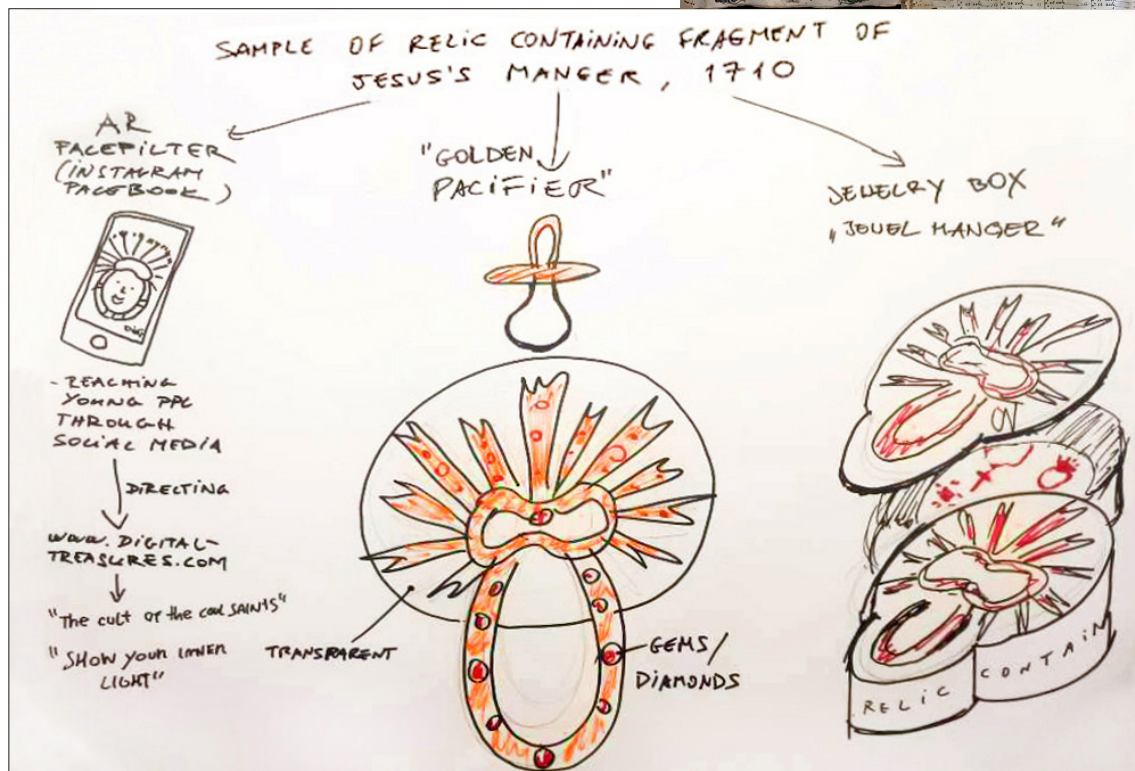 SAMPLE OF RELIC CONTAINING FRAGMENT OF
JESUS'S MANGER, 1710
AR
FACEFILTER
(INSTAGRAM
FACEBOOK)
- REACHING
YOUNG PPL
THROUGH
SOCIAL MEDIA
DIRECTING
www.DIGITAL-
TREASURES.COM
"The cult of the cool SAINTS"
"SHOW YOUR INNER
LIGHT"
"GOLDEN
PACIFIER"
TRANSPARENT
GEMS/
DIAMONDS
JEWELRY BOX
"JEWEL MANGER"
RELIC CONTAIN